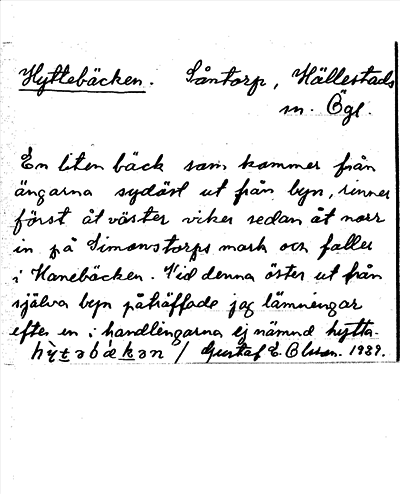 Hyttebäcken. Såntorp, Hällestads
m. Ögl.
En liten bäck som kommer från
ängarna sydöst ut från byn, rinner
först åt väster viker sedan åt norr
in på Simonstorps mark och faller
i Kanebäcken. Vid denna öster ut från
själva byn påträffade jag lämningar
efter en i handlingarna ej nämnd hytta.
hỳtəbǽkən / Gustaf E. Olsson. 1939.